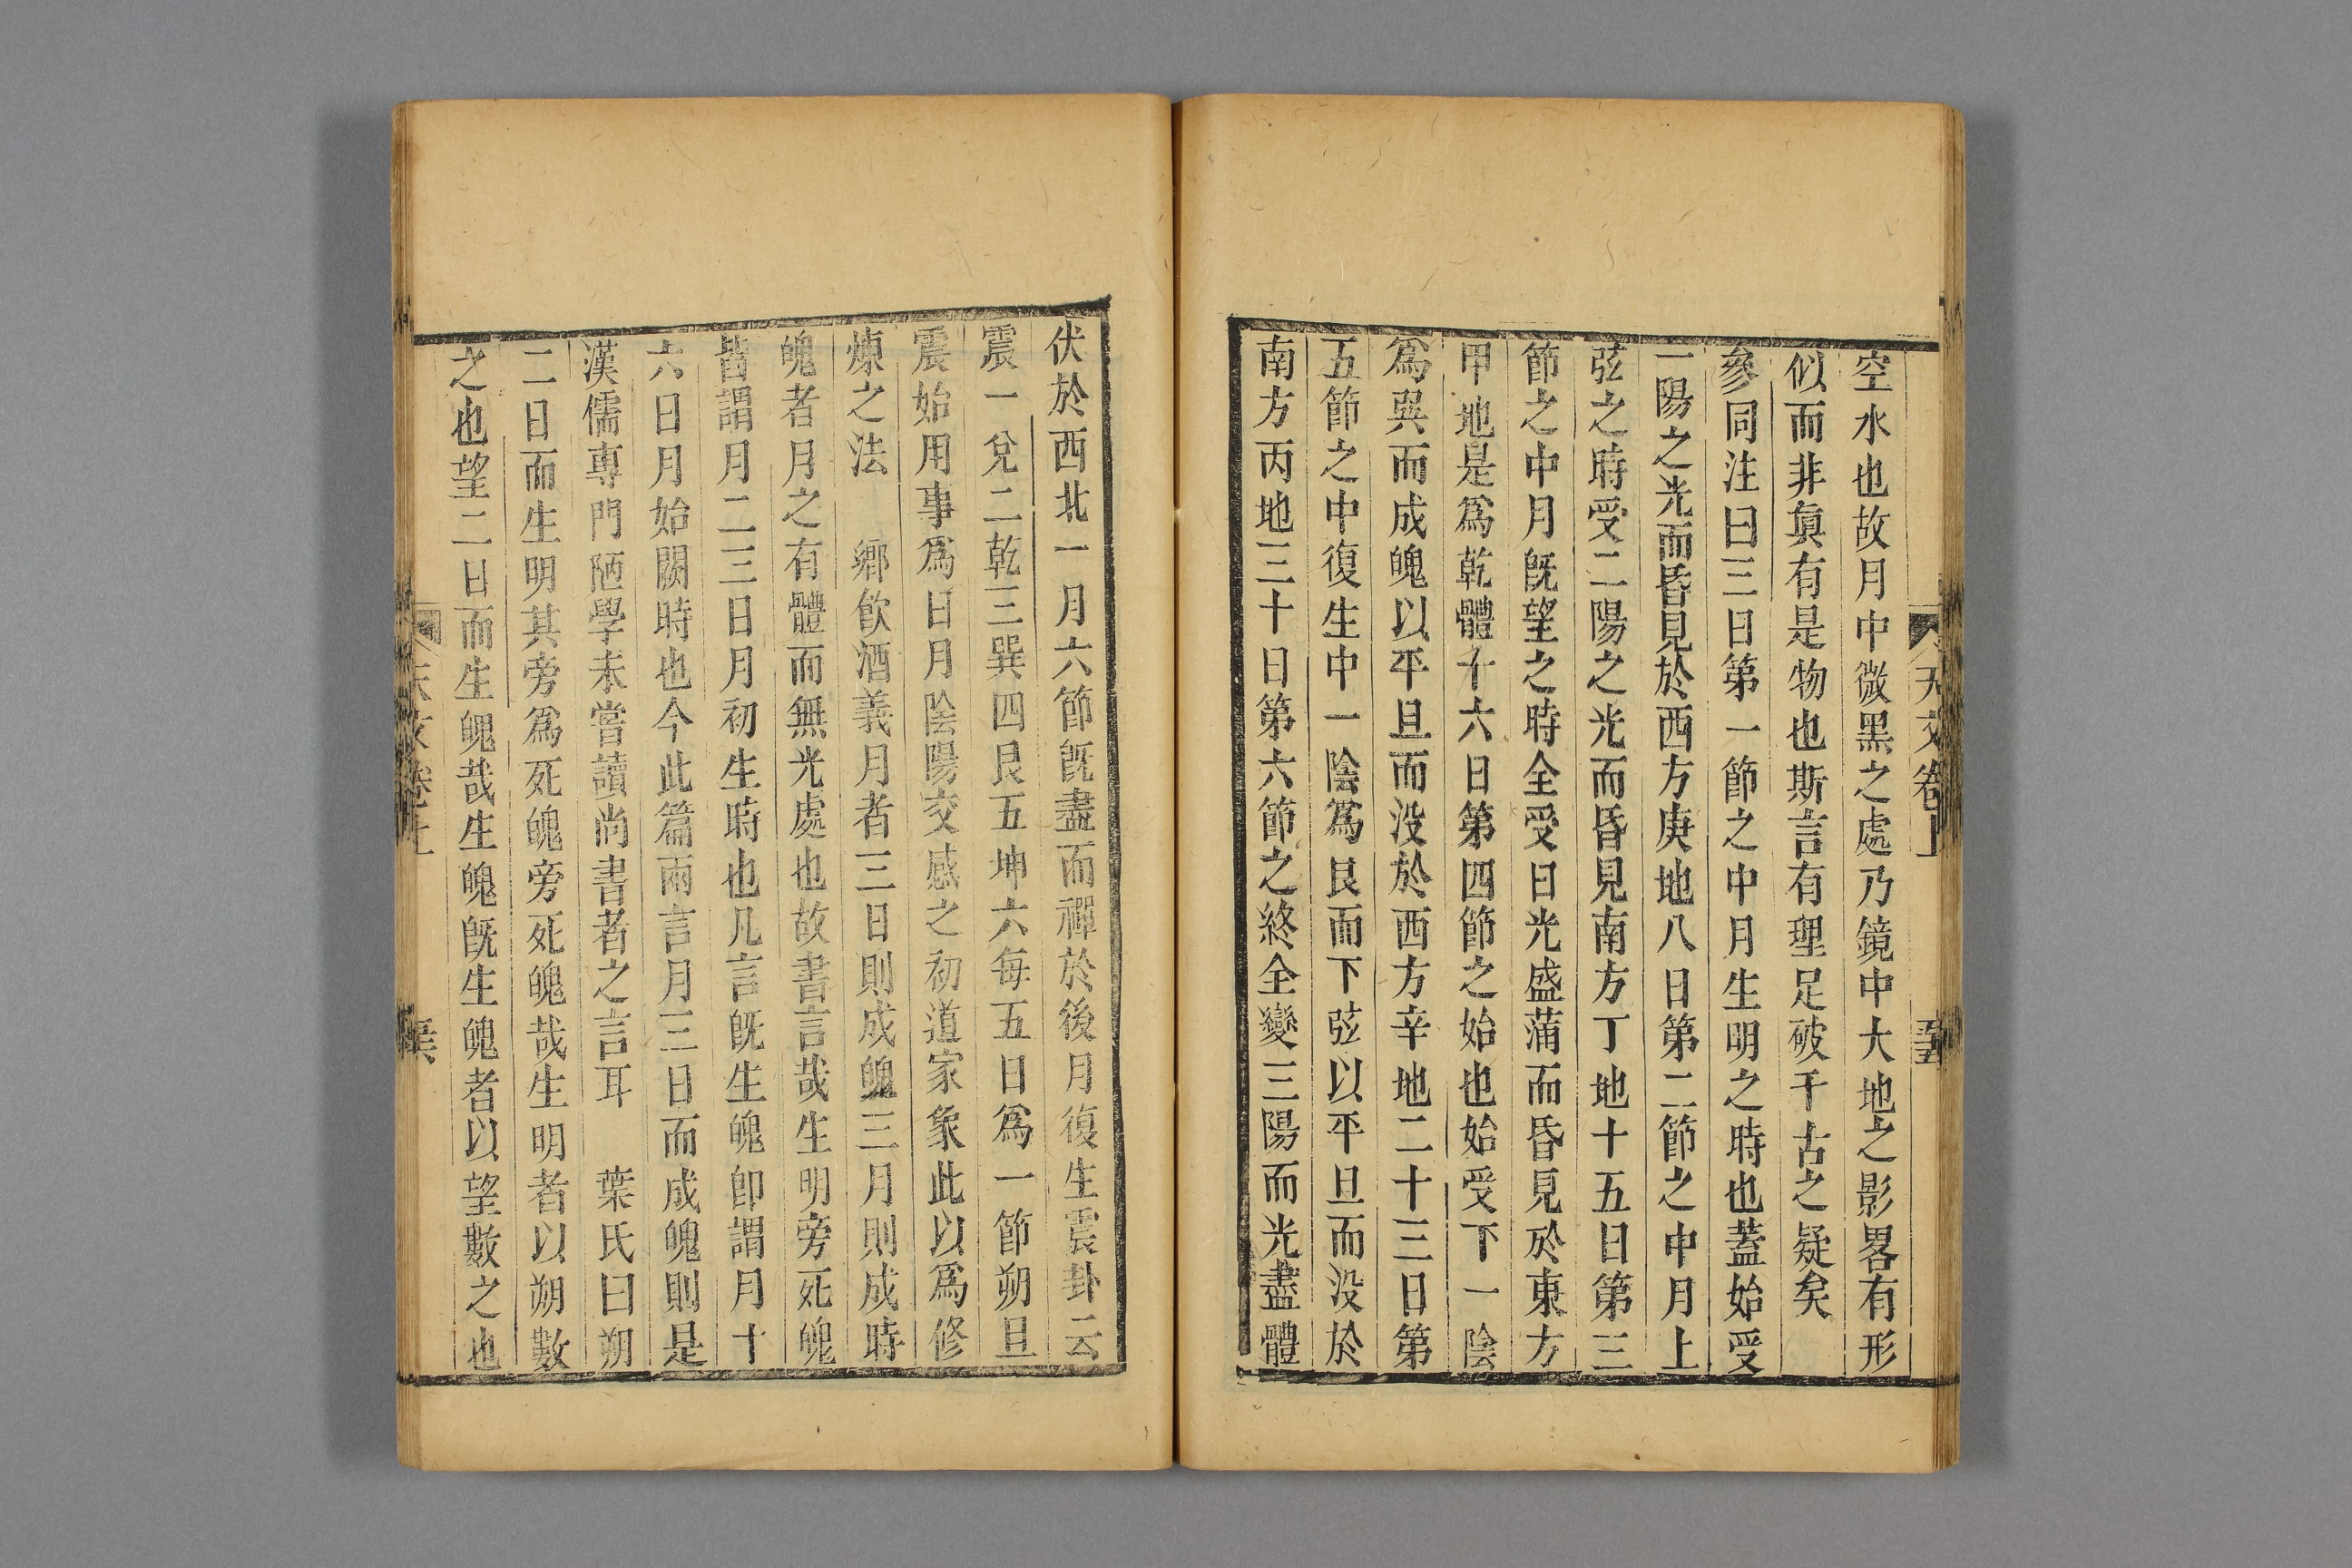 天文卷上
空水也故月中微黑之處乃鏡中大地之影畧有形
似而非眞有是物也斯言有理足破千古之疑矣
參同注曰三日第一節之中月生明之時也蓋始受
一陽之光而昏見於西方庚地八日第二節之中月上
弦之時受二陽之光而昏見南方丁地十五日第三
節之中月旣望之時全受日光盛蒲而昏見於東方
甲地是爲乾體十六日第四節之始也始受下一陰
爲巽而成魄以平旦而没於西方辛地二十三日第
五節之中復生中一陰爲艮而下弦以平旦而没於
南方丙地三十日第六節之終全變三陽而光盡體
伏於西北一月六節旣盡而禪於後月復生震卦云
震一兌二乾三巽四艮五坤六每五日爲一節朔旦
震始用事爲日月陰陽交感之初道家象此以爲修
煉之法　鄉飮酒義月者三日則成魄三月則成時
魄者月之有體而無光處也故書言哉生明旁死魄
皆謂月二三日月初生時也凡言旣生魄卽謂月十
六日月始闕時也今此篇兩言月三日而成魄則是
漢儒專門陋學未嘗讀尚書者之言耳　葉氏曰朔
二日而生明其旁爲死魄旁死魄哉生明者以朔數
之也望二日而生魄哉生魄旣生魄者以望數之也